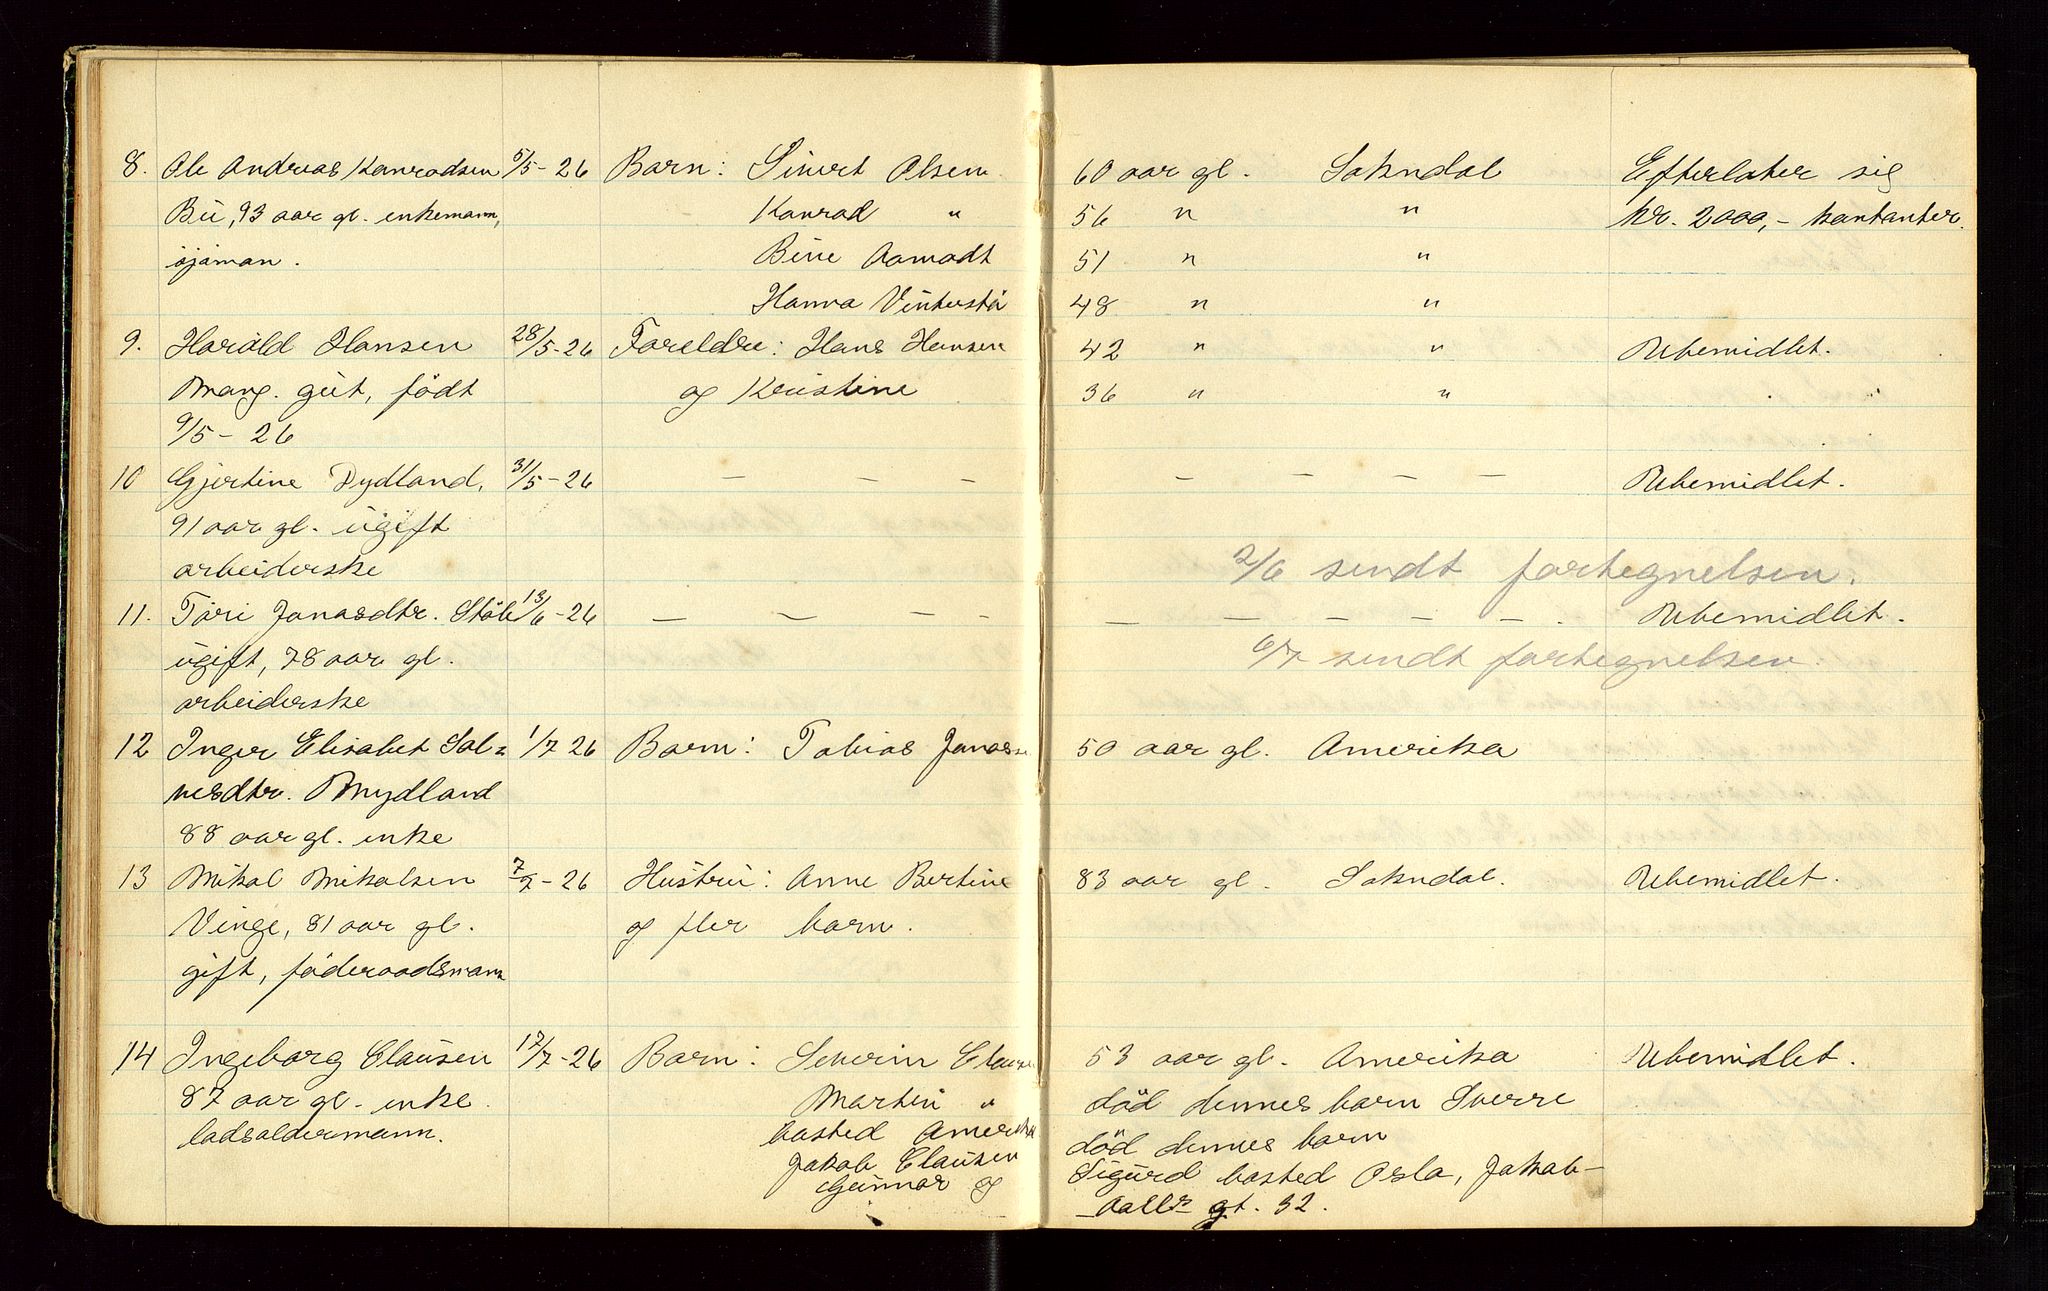 8. Ole Andreas Konradsen 5/5-26 Barn: Sivert Olsen 60 aar gl. Sokndal Efterlater sig
Bu, 93 aar gl. enkemann, Konrad " 56 " " kr. 2000,- kontanter.
sjøman. Bine Aamodt 51 " "
Hanna Vinterstø 48 " "
9. Harald Hansen 28/5-26 Foreldre: Hans Hansen 42 " " Ubemidlet.
Mong. gut, født og Kristine 36 " "
9/5-26
10 Gjertine Dydland, 31/5-26 - - - - - - - Ubemidlet.
91 aar gl. ugift
arbeiderske 2/6 sendt fortegnelsen.
11. Tori Jonasdtr. Støle 13/6-26 - - - - - - - - - Ubemidlet.
ugift, 78 aar gl. 6/7 sendt fortegnelsen.
arbeiderske
12 Inger Elisabet Sal= 1/7 26 Barn: Tobias Jonassen 50 aar gl. Amerika
vesdtr. Mydland
88 aar gl. enke
13 Mikal Mikalsen 7/7-26 Hustru: Anne Bertine 83 aar gl. Sokndal. Ubemidlet.
Vinge, 81 aar gl. og fler barn.
gift, føderaadsmann
14 Ingeborg Clausen 17/7-26 Barn: Severin Clausen 53 aar gl. Amerika Ubemidlet.
87 aar gl. enke Martin " død dennes barn Sverre
ladsoldermann. bosted Amerika død dennes barn
Jakob Clausen Sigurd bosted Oslo, Jakob-
Gunnar og -Aalls gt. 32.